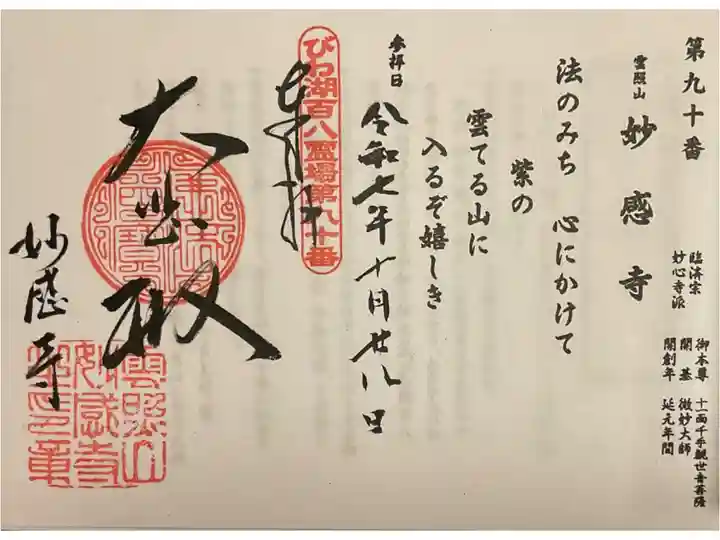 第九十番
雲照山 妙感寺 臨済宗 妙心寺派
御本尊 十一面千手観世音菩薩
開基 微妙大師
開創年 延元年間
法のみち 心にかけて
紫の
雲てる山に
入るぞ嬉しき
参拝日 令和七年十月廿八日
びわ湖百八霊場第九十番
奉拝
大悲殿
妙感寺
雲照山
妙感寺